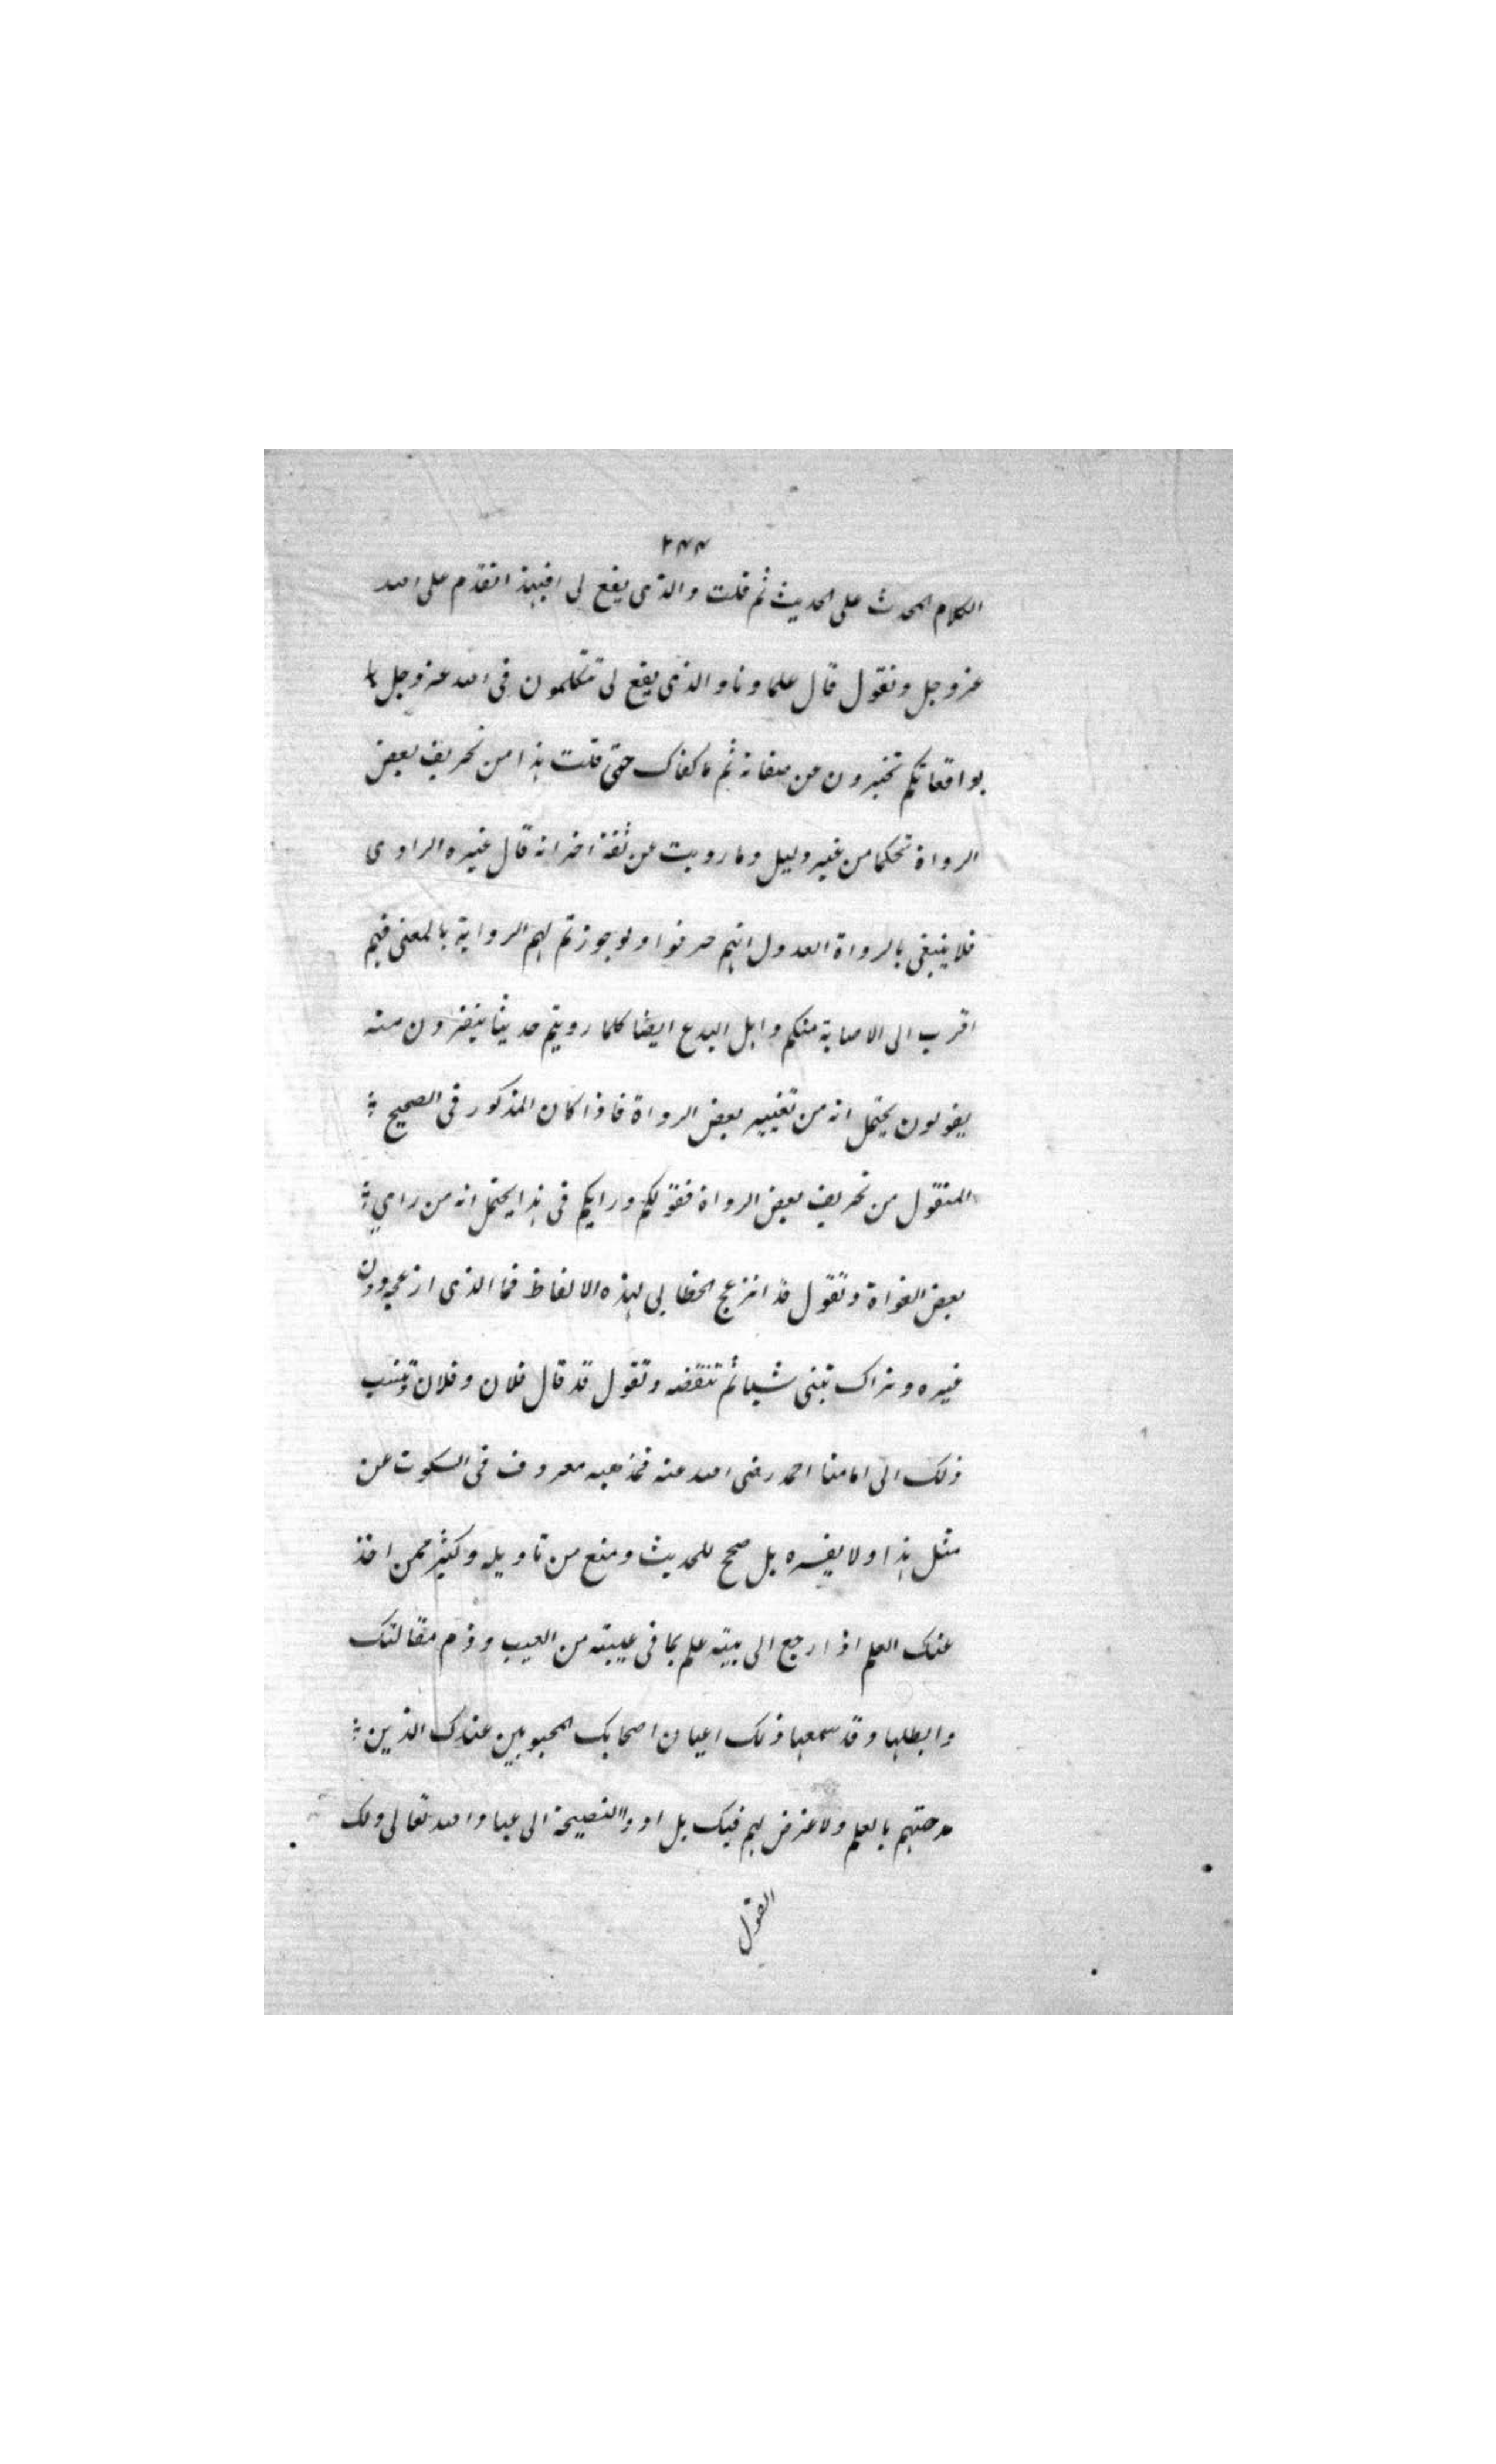 ٢٣٣
الكلام المحدث على الحديث ثم قلت والذى يقع لى افبهذا تقدم على الله
عز وجل وتقول قال علماونا والذى يقع لى تتكلمون فى الله عز وجل
بواقعاتكم تخبرون عن صفاته ثم ما كفاك حتى قلت هذا من تحريف بعض
الرواة تحكما من غير دليل وما رويت عن ثقة اخر انه قال غيره الراوى
فلا ينبغى بالرواة العدول انهم حرفوا ولو جوزتم لهم الرواية بالمعنى فهم
اقرب الى الاصابة منكم واهل البدع ايضا كلما رويتم حديثا ينفرون منه
يقولون يحتمل انه من تغيير بعض الرواة فاذا كان المذكور فى الصحيح
المنقول من تحريف بعض الرواة فقولكم ورايكم فى هذا يحتمل انه من راى
بعض الغواة وتقول قد انزعج الخطابى لهذه الالفاظ فما الذى ازعجه دون
غيره ونراك تبنى شيا ثم تنقضه وتقول قد قال فلان وفلان وتنسب
ذلك الى امامنا احمد رضى الله عنه فمذهبه معروف فى السكوت عن
مثل هذا ولا يفسره بل صحح للحديث ومنع من تاويله وكثير ممن اخذ
عنك العلم اذا رجع الى بيته علم بما فى عيبته من العيب وذم مقالتك
وابطلها وقد سمعنا ذلك اعيان اصحابك المحبوبين عندك الذين
مدحتهم بالعلم ولا غرض لهم فيك بل ادوا النصيحة الى عباد الله تعالى ولك
القول